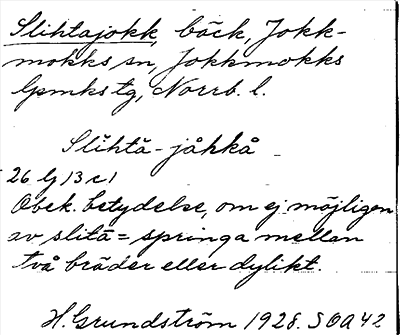 Slihtajokk, bäck, Jokk-
mokks sn, Jokkmokks
lpmks tg, Norrb. l.
Slĭhtă-jåhkå
26 G 13 c 1
Obek. betydelse, om ej möjligen
av slitā = springa mellan
två bräder eller dylikt.
H. Grundström 1928. SOA 42